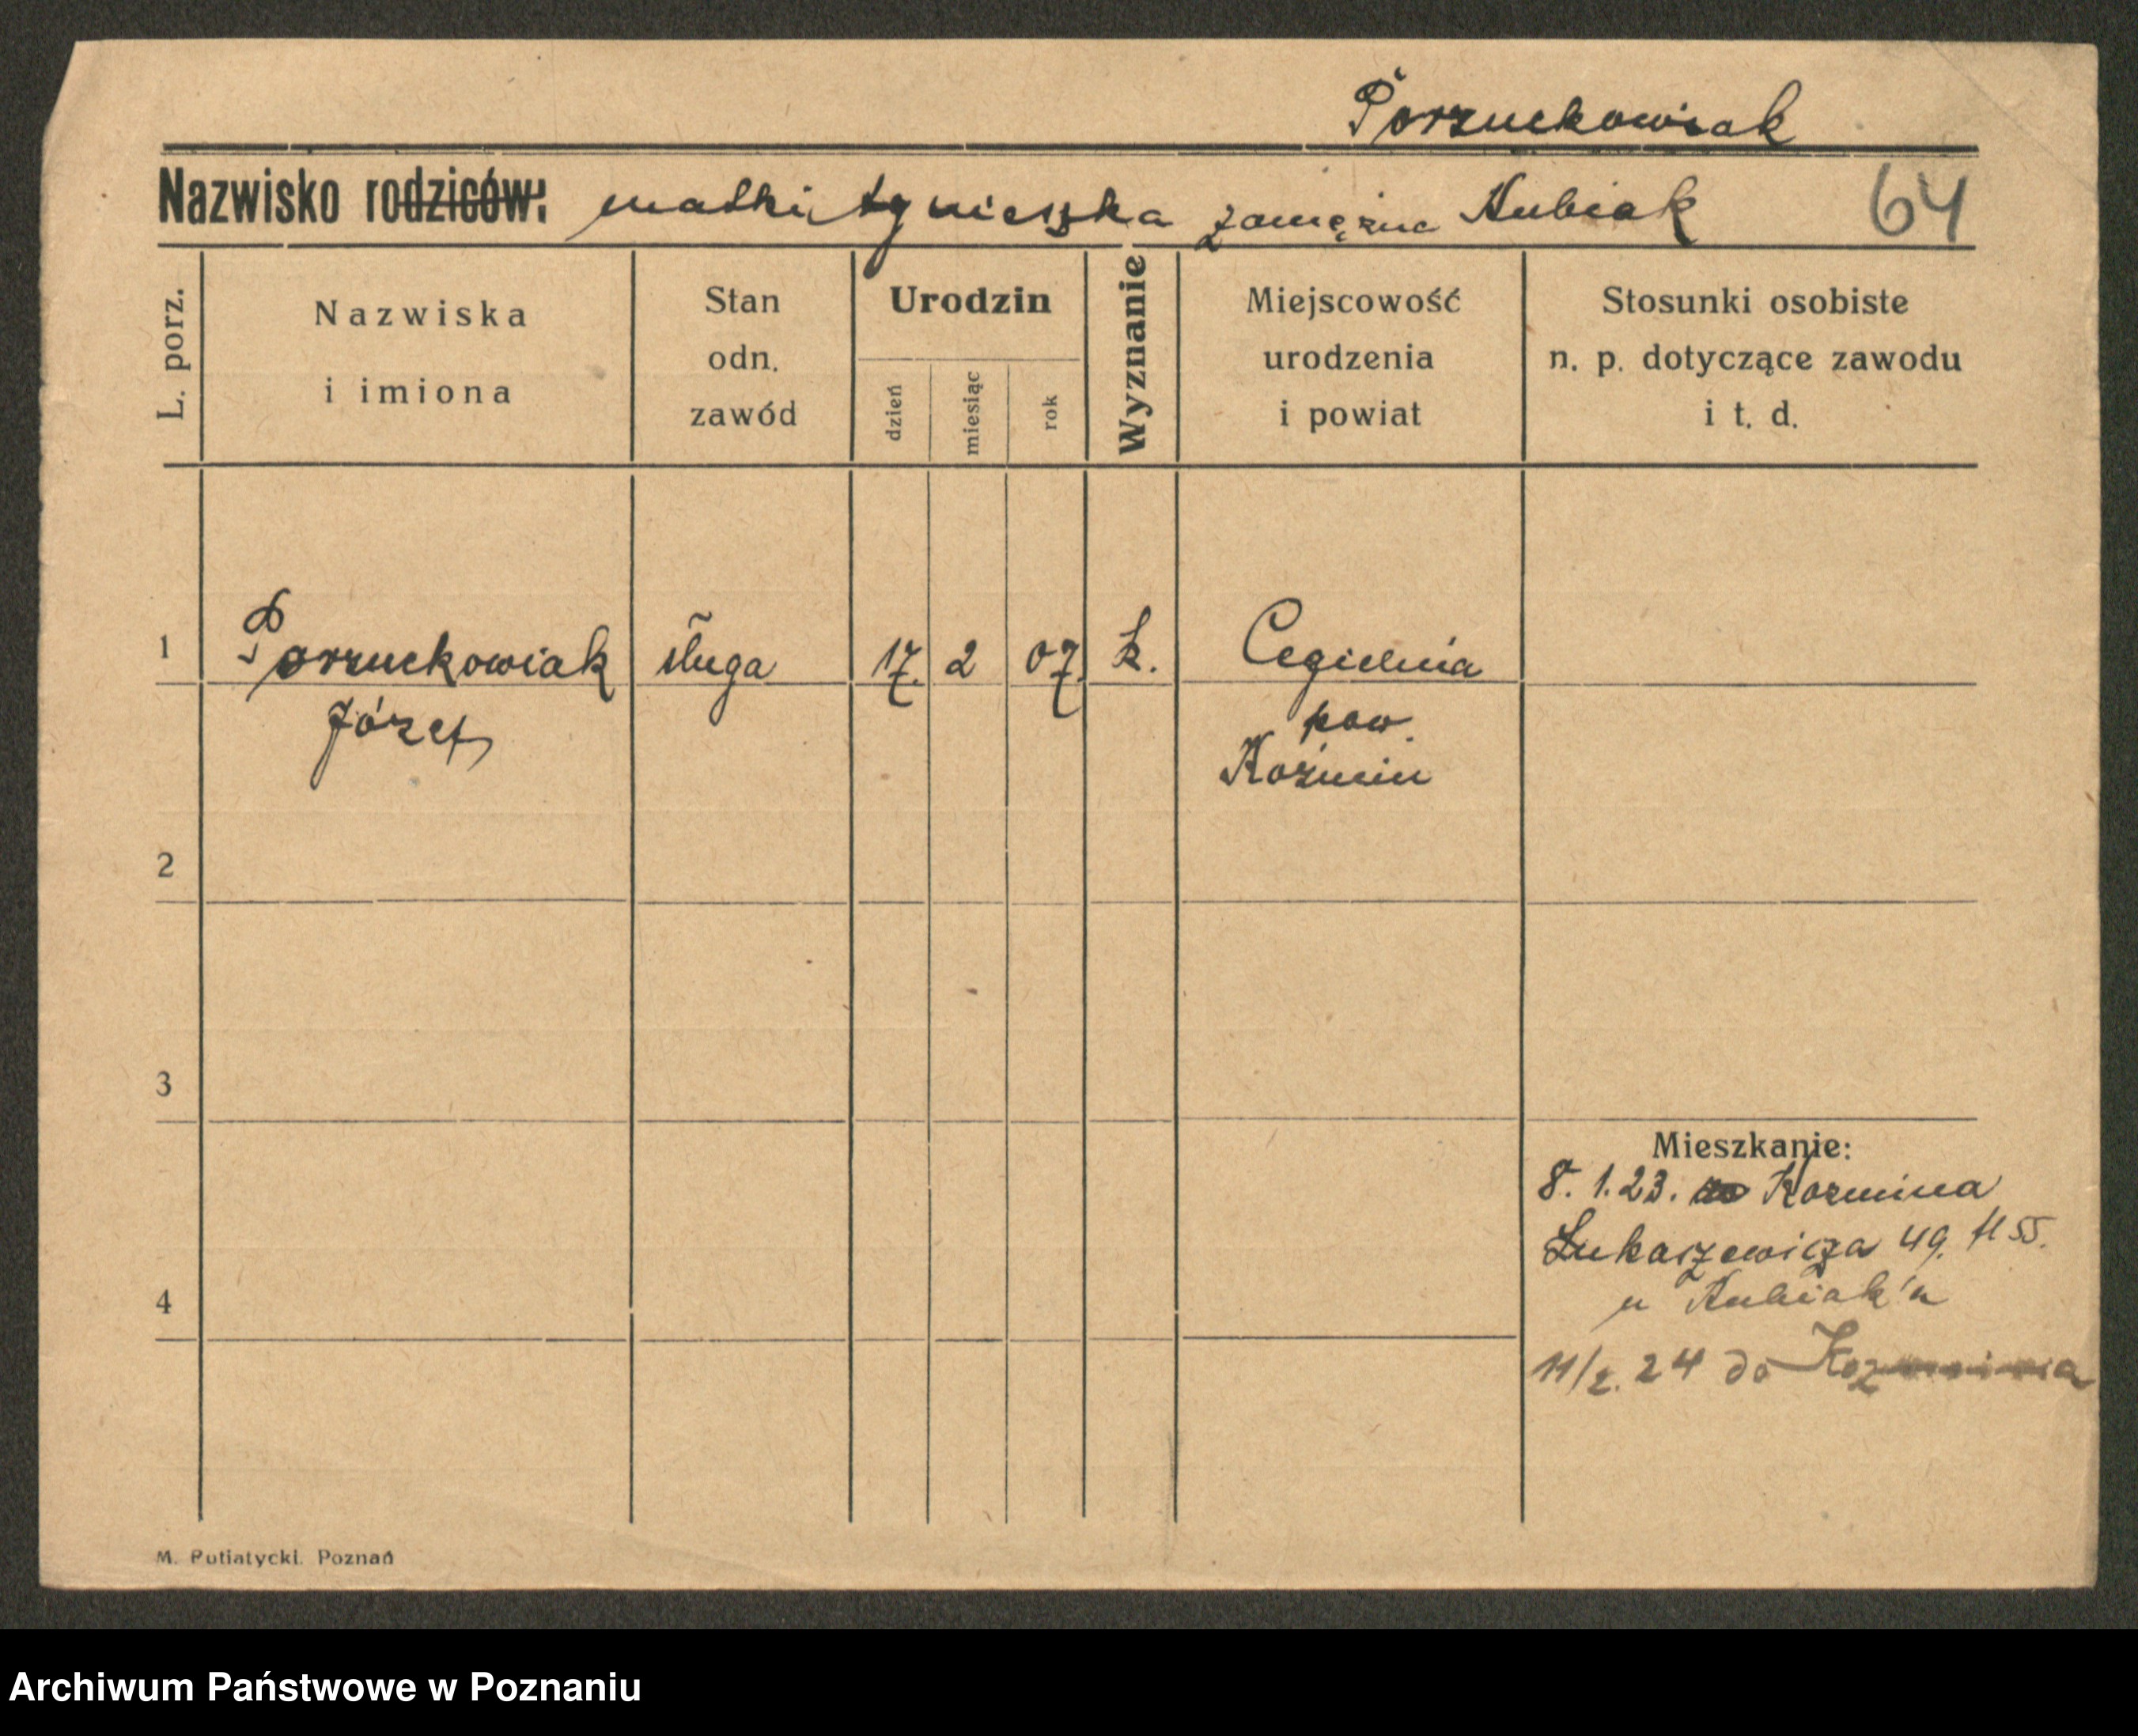 Porzuckowiak
Nazwisko rodziców: matki Agnieszka zamężna Kubiak 64
L. porz.
Nazwiska
i imiona
Stan
odn.
zawód
Urodzin
dzień
miesiąc
rok
Wyznanie
Miejscowość
urodzenia
i powiat
Stosunki osobiste
n. p. dotyczące zawodu
i t. d.
1 Porzuckowiak sługa 17. 2 07. k. Cegielnia
Józef pow.
Koźmin
2
3
Mieszkanie:
8. 1. 23. Kozmina
Łukaszewicza 49. II 55.
4 u Kubiak'a
11/2. 24 do Kozmina
M. Putiatycki. Poznań
Archiwum Państwowe w Poznaniu